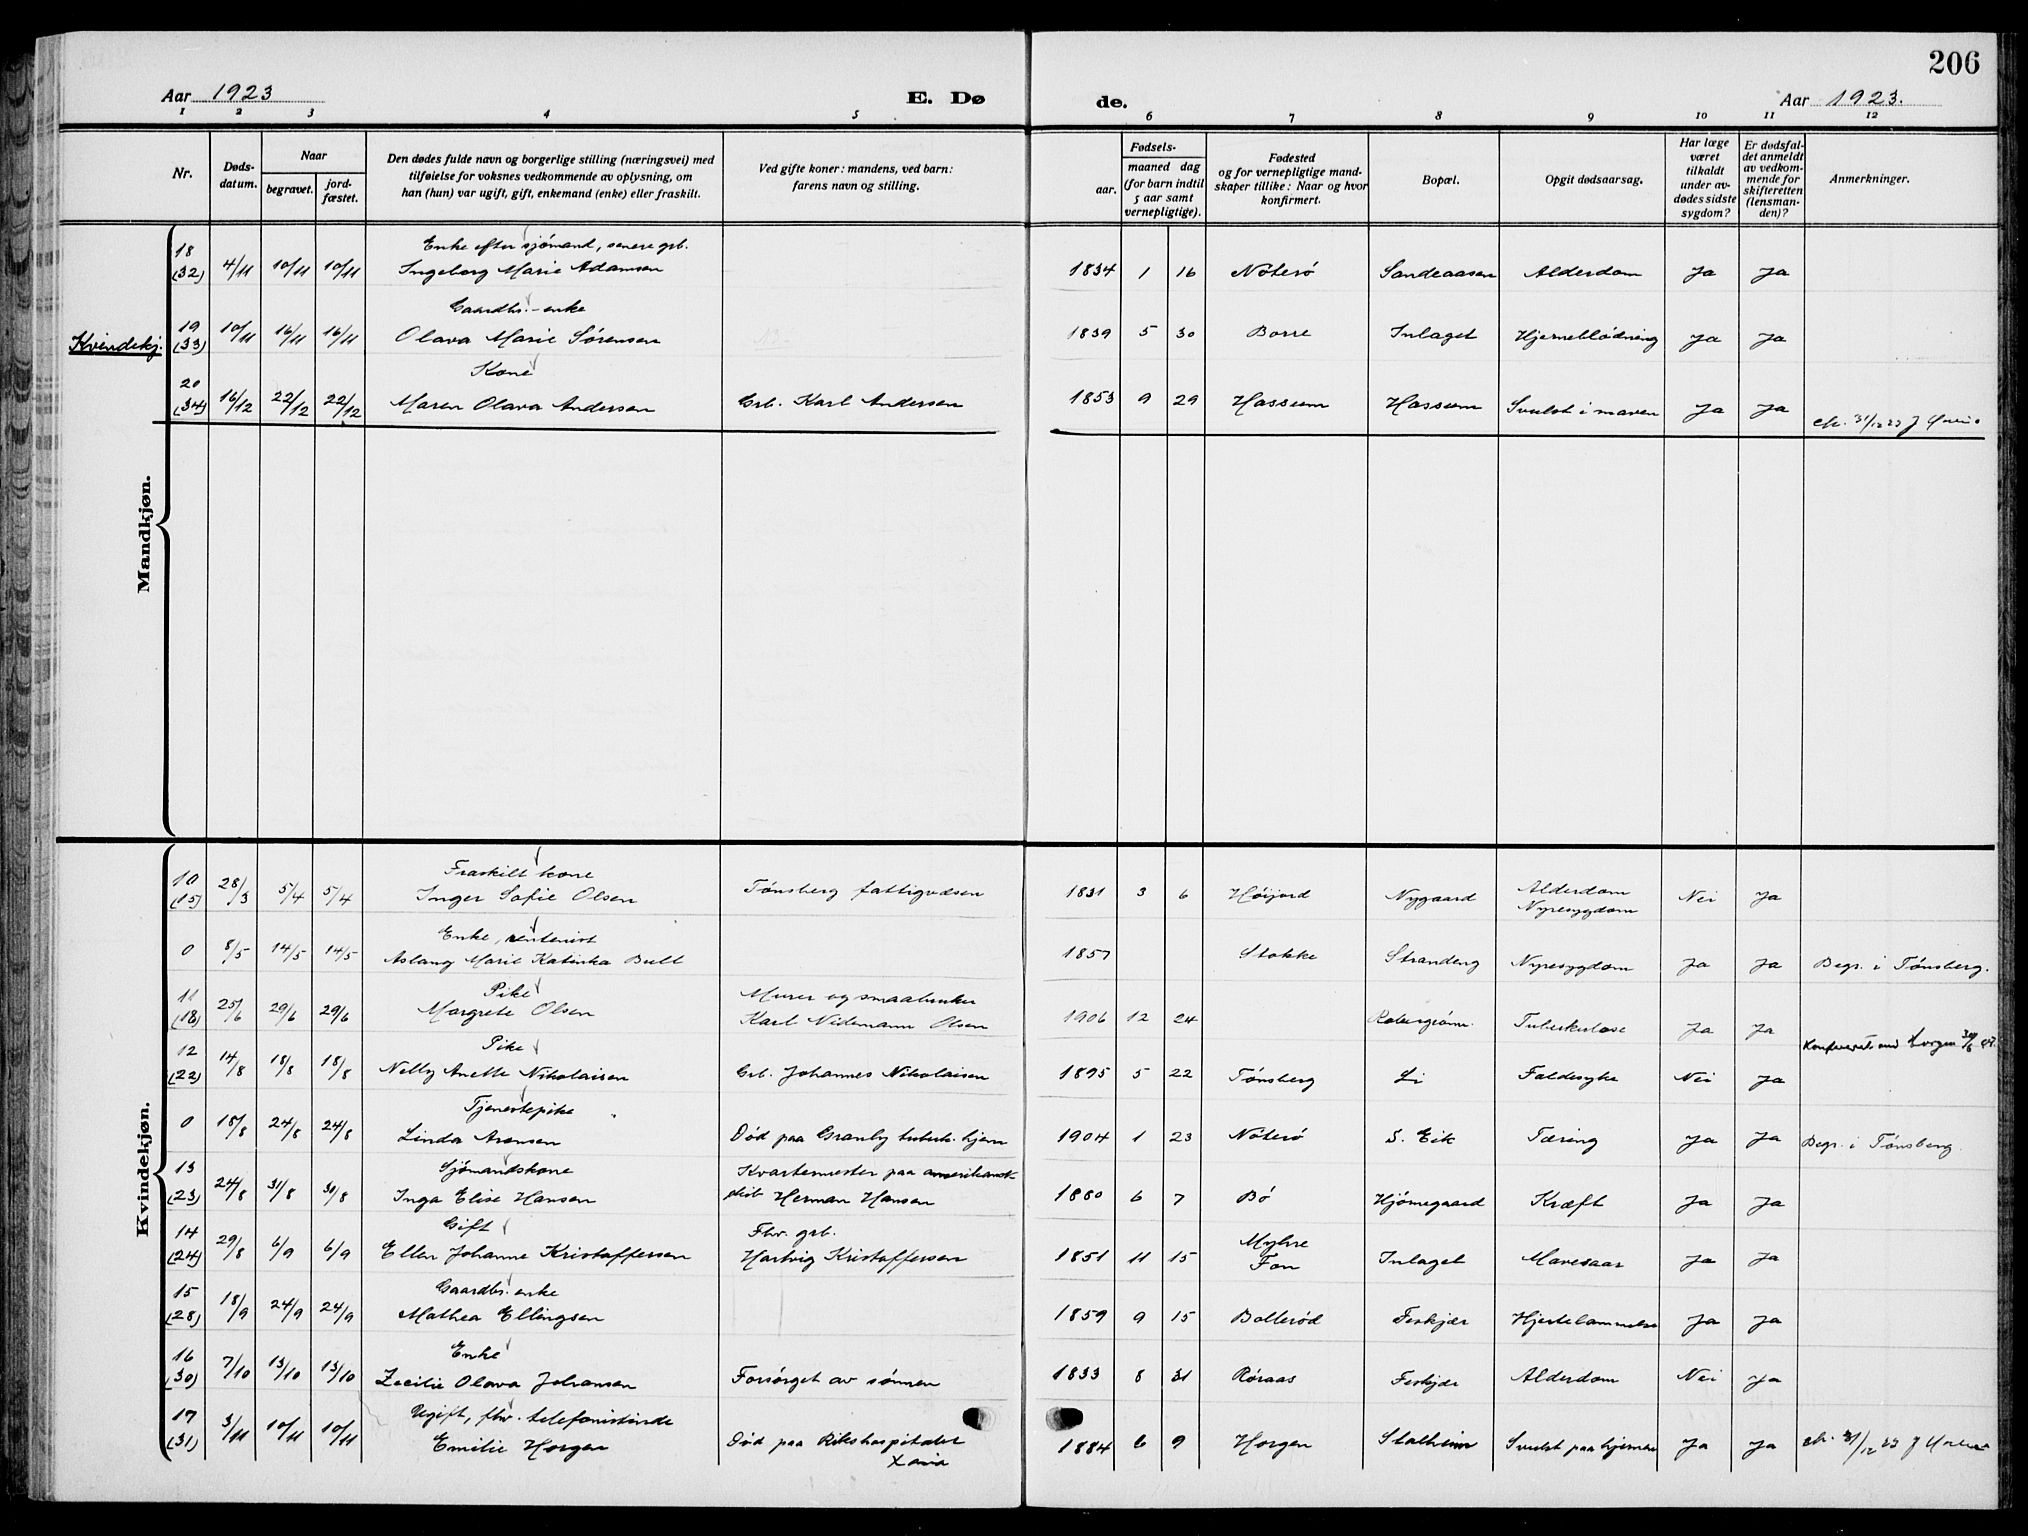 206
Aar 1923
E. Dø
de.
Aar 1923.
1 2 3 4 5 6 7 8 9 10 11 12
Nr.
Døds-
datum.
Naar
begravet.
jord-
fæstet.
Den dødes fulde navn og borgerlige stilling (næringsvei) med
tilføielse for voksnes vedkommende av oplysning, om
han (hun) var ugift, gift, enkemand (enke) eller fraskilt.
Ved gifte koner: mandens, ved barn:
farens navn og stilling.
Fødsels-
aar.
maaned dag
(for barn indtil
5 aar samt
vernepligtige).
Fødested
og for vernepligtige mand-
skaper tillike: Naar og hvor
konfirmert.
Bopæl.
Opgit dødsaarsag.
Har læge
været
tilkaldt
under av-
dødes sidste
sygdom?
Er dødsfal-
det anmeldt
av vedkom-
mende for
skifteretten
(lensman-
den)?
Anmerkninger.
Kvindekj.
18 Enke efter sjømand, senere grb.
(32) 4/11 10/11 10/11 Ingeborg Marie Adamsen 1834 1 16 Nøterø Sandeaasen Alderdom Ja Ja
Gaardbr.-enke
19 10/11 16/11 16/11 Olava Marie Sørensen 1839 5 30 Borre Inlaget Hjerneblødning Ja Ja
(33)
Kone
20
(34) 16/12 22/12 22/12 Maren Olava Andersen Grb. Karl Andersen 1853 9 29 Hassum Hassum Svulst i maven Ja Ja
31/12 23
Mandkjøn.
Kvindekjøn.
Fraskilt kone
10 28/3 5/4 5/4 Inger Sofie Olsen Tønsberg fattigvæsen 1831 3 6 Høijord Nygaard Alderdom Nei Ja
(15) Nyresygdom
Enke, rentenist
0 8/5 14/5 14/5 Aslaug Marie Katinka Bull 1857 Stokke Strandeng Nyresygdom Ja Ja Begr. i Tønsberg.
11 Pike Murer og smaabruker
(18) 25/6 29/6 29/6 Margrete Olsen Karl Nidemann Olsen 1906 12 24 Tuberkulose Ja Ja
12 Pike
(22) 14/8 18/8 18/8 Nelly Anette Nikolaisen Grb. Johannes Nikolaisen 1895 5 22 Tønsberg Li Faldesyke Nei Ja
Tjenestepike
0 18/8 24/8 24/8 Linda Arensen Død paa Granly tuberk. hjem 1904 1 23 Nøterø S. Eik Tæring Ja Ja Begr. i Tønsberg.
13 Sjømandskone Kvartermester paa amerikansk
(23) 24/8 31/8 31/8 Inga Elise Hansen skib Herman Hansen 1880 6 7 Bø Hjømegaard Kræft Ja Ja
14 Gift Fhv. grb.
(24) 29/8 6/9 6/9 Ellen Johanne Kristoffersen Hartvig Kristoffersen 1851 11 15 Myhre
Fon Inlaget Mavesaar Ja Ja
15 Gaardbr. enke
(28) 18/9 24/9 24/9 Mathea Ellingsen 1859 9 15 Bollerød Feskjær Hjertelammelse Ja Ja
16 Enke
(30) 7/10 13/10 13/10 Zecilie Olava Johansen Forsørget av sønnen 1833 8 31 Røraas Feskjær Alderdom Nei Ja
17 Ugift, fhv. telefonistinde
(31) 3/11 10/11 10/11 Emilie Horgen Død paa Rikshospitalet 1884 6 9 Horgen Stalheim Svulst paa hjernen Ja Ja 31/12 23